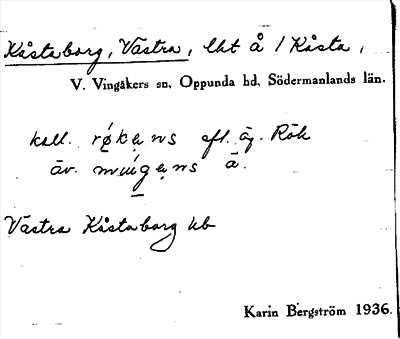 Kåstaborg, Västra, lht å 1 Kåsta,
V. Vingåkers sn, Oppunda hd, Södermanlands län.
kall. røkens eft. äg. Rök
äv. ens å.
Västra Kåstaborg kb
Karin Bergström 1936.